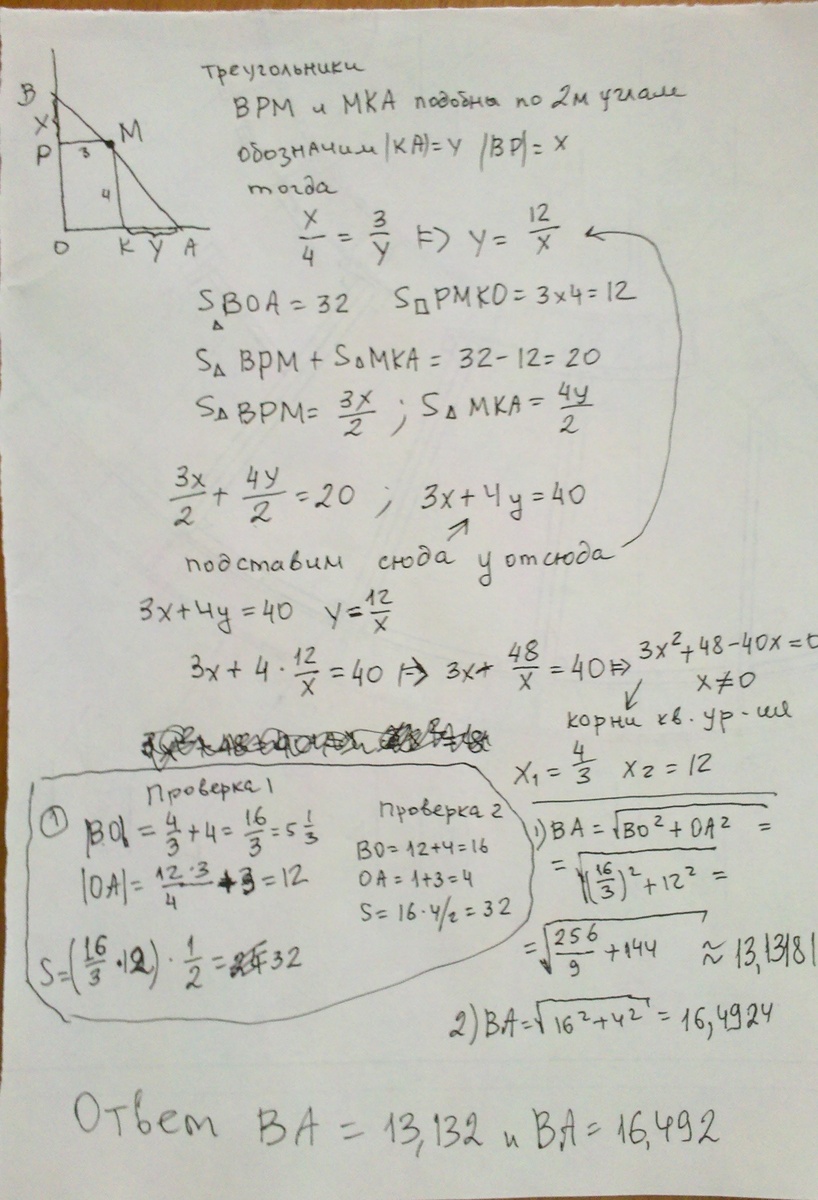 треугольники
BPM и MKA подобны по 2м углам
обозначим |KA|=y |BP|=x
тогда
B
X
P
3
M
4
O
K
y
A
x/4 = 3/y ⇒ y = 12/x
S△BOA = 32 S□PMKO = 3x4 = 12
S△ BPM + S△MKA = 32-12=20
S△BPM = 3x/2 ; S△ MKA = 4y/2
3x/2 + 4y/2 = 20 ; 3x+4y=40
подставим сюда y отсюда
3x+4y=40 y=12/x
3x + 4 · 12/x = 40 ⇒ 3x + 48/x = 40 ⇒ 3x²+48-40x=0
x≠0
корни кв. ур-ия
x₁ = 4/3 x₂ = 12
Проверка 1
① |BO| = 4/3 + 4 = 16/3 = 5 1/3
|OA| = 12·3/4 + 3 = 12
S=(16/3 · 12) · 1/2 = 32
Проверка 2
BO=12+4=16
OA = 1+3=4
S= 16·4/2 = 32
1) BA = √BO² + OA² =
= √(16/3)² + 12² =
= √256/9 + 144 ≈ 13,13181
2) BA=√16²+4² = 16,4924
Ответ BA = 13,132 и BA = 16,492